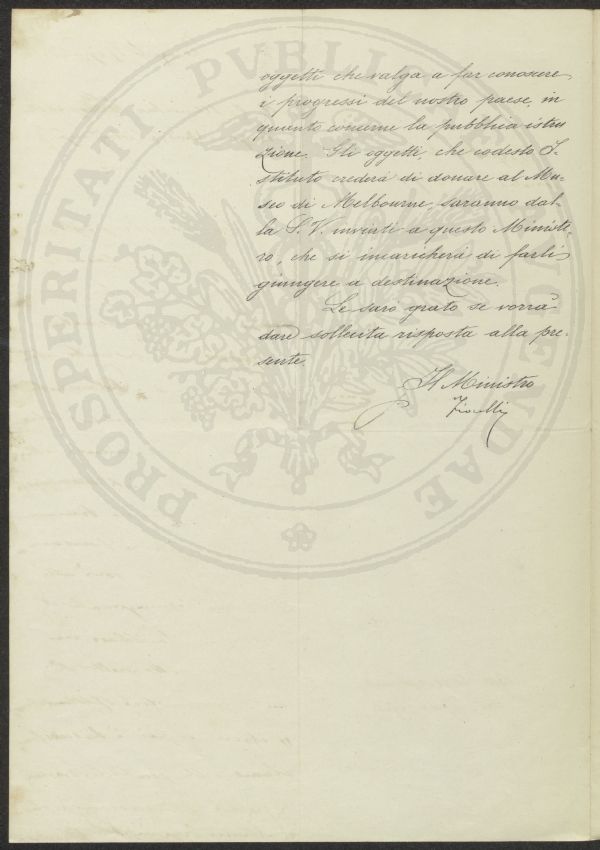 oggetti che valga a far conoscere
i progressi del nostro paese, in
quanto concerne la pubblica istru
zione. Gli oggetti, che codesto I-
stituto crederà di donare al Mu-
seo di Melbourne, saranno dal-
la S. V. inviati a questo Ministe-
ro, che si incaricherà di farli
giungere a destinazione.
Le sarò grato se vorrà
dare sollecita risposta alla pre-
sente.
Il Ministro
Fiorelli
PROSPERITATI PVBLICAE AVGENDAE